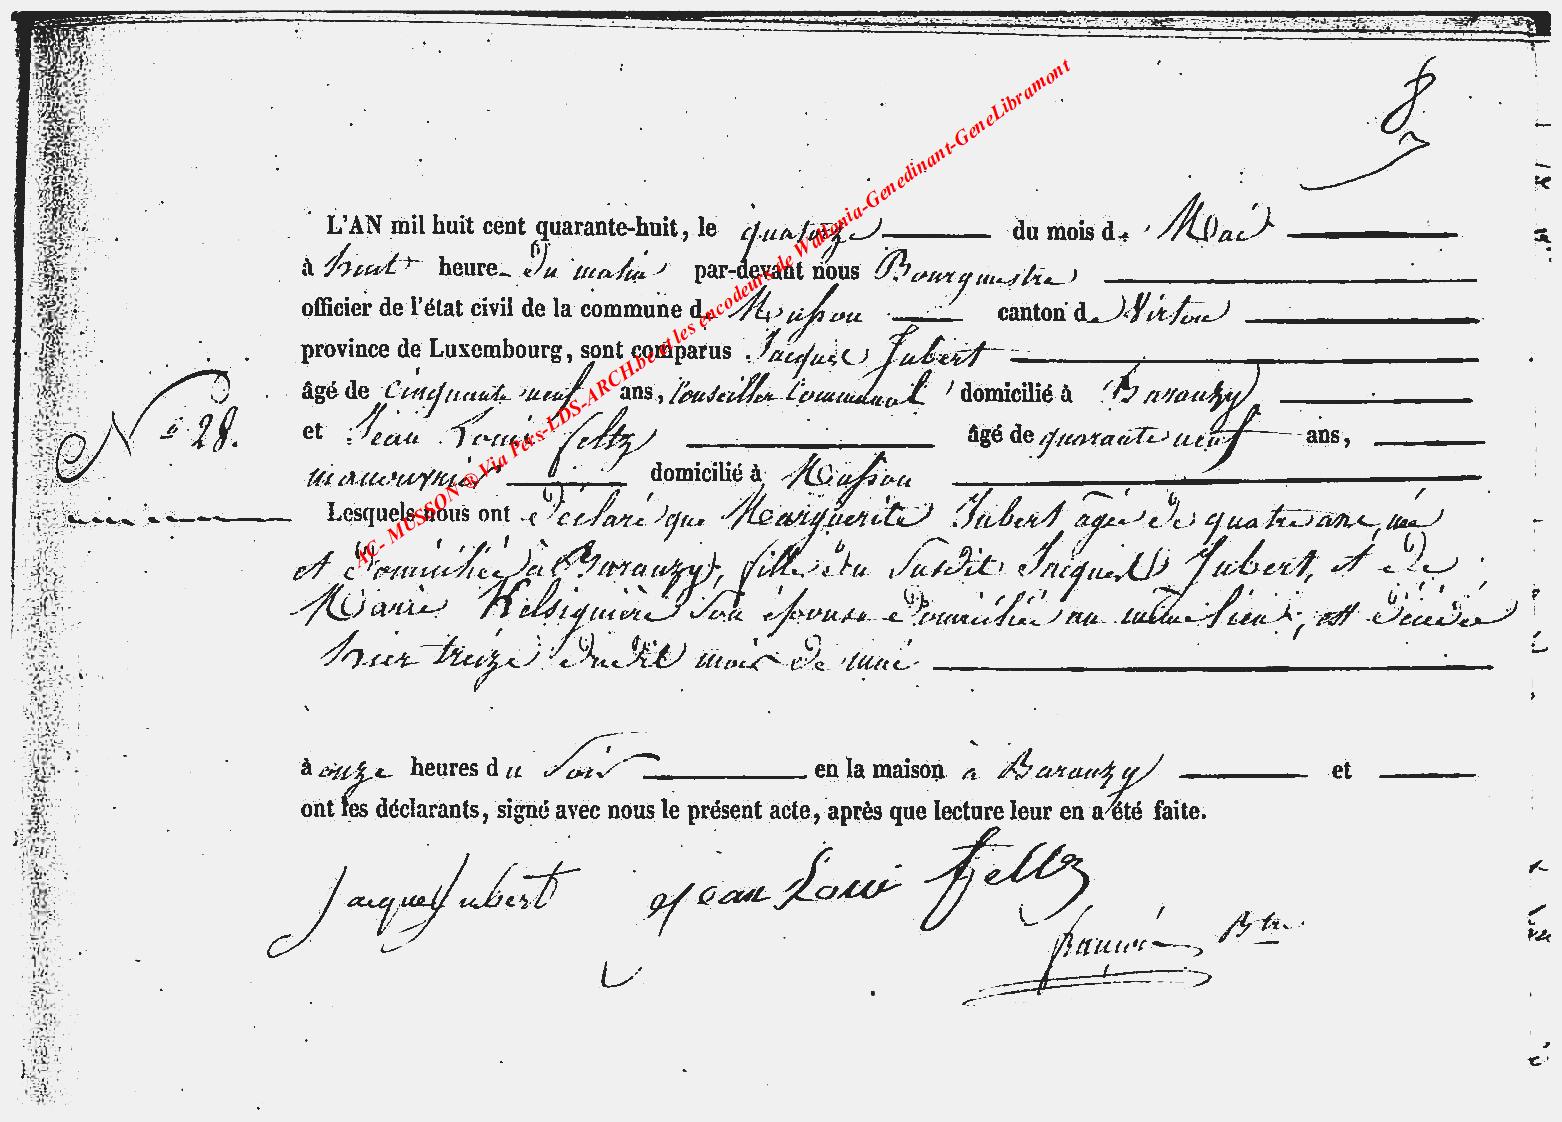 8
L'AN mil huit cent quarante-huit, le quatorze du mois de Mai
à huit heures du matin par-devant nous Bourgmestre
officier de l'état civil de la commune de Musson canton de Virton
province de Luxembourg, sont comparus Jacques Jubert
âgé de cinquante neuf ans, Conseiller Communal domicilié à Baranzy
N° 28.
et Jean Louis Feltz âgé de quarante neuf ans,
manouvrier domicilié à Musson
Lesquels nous ont déclaré que Marguerite Jubert agée de quatre ans, née
et domiciliée à Baranzy, fille du susdit Jacques Jubert, et de
Marie Helsiguière son épouse domiciliée au même lieu, est décédée
hier treize dudit mois de mai
à onze heures du soir en la maison à Baranzy et
ont les déclarants, signé avec nous le présent acte, après que lecture leur en a été faite.
Jacques Jubert Jean Loui Feltz
Btre
AC- MUSSON ® Via Pers-LDS-ARCH.be et les encodeurs de Wallonia-Genedinant-GeneLibramont